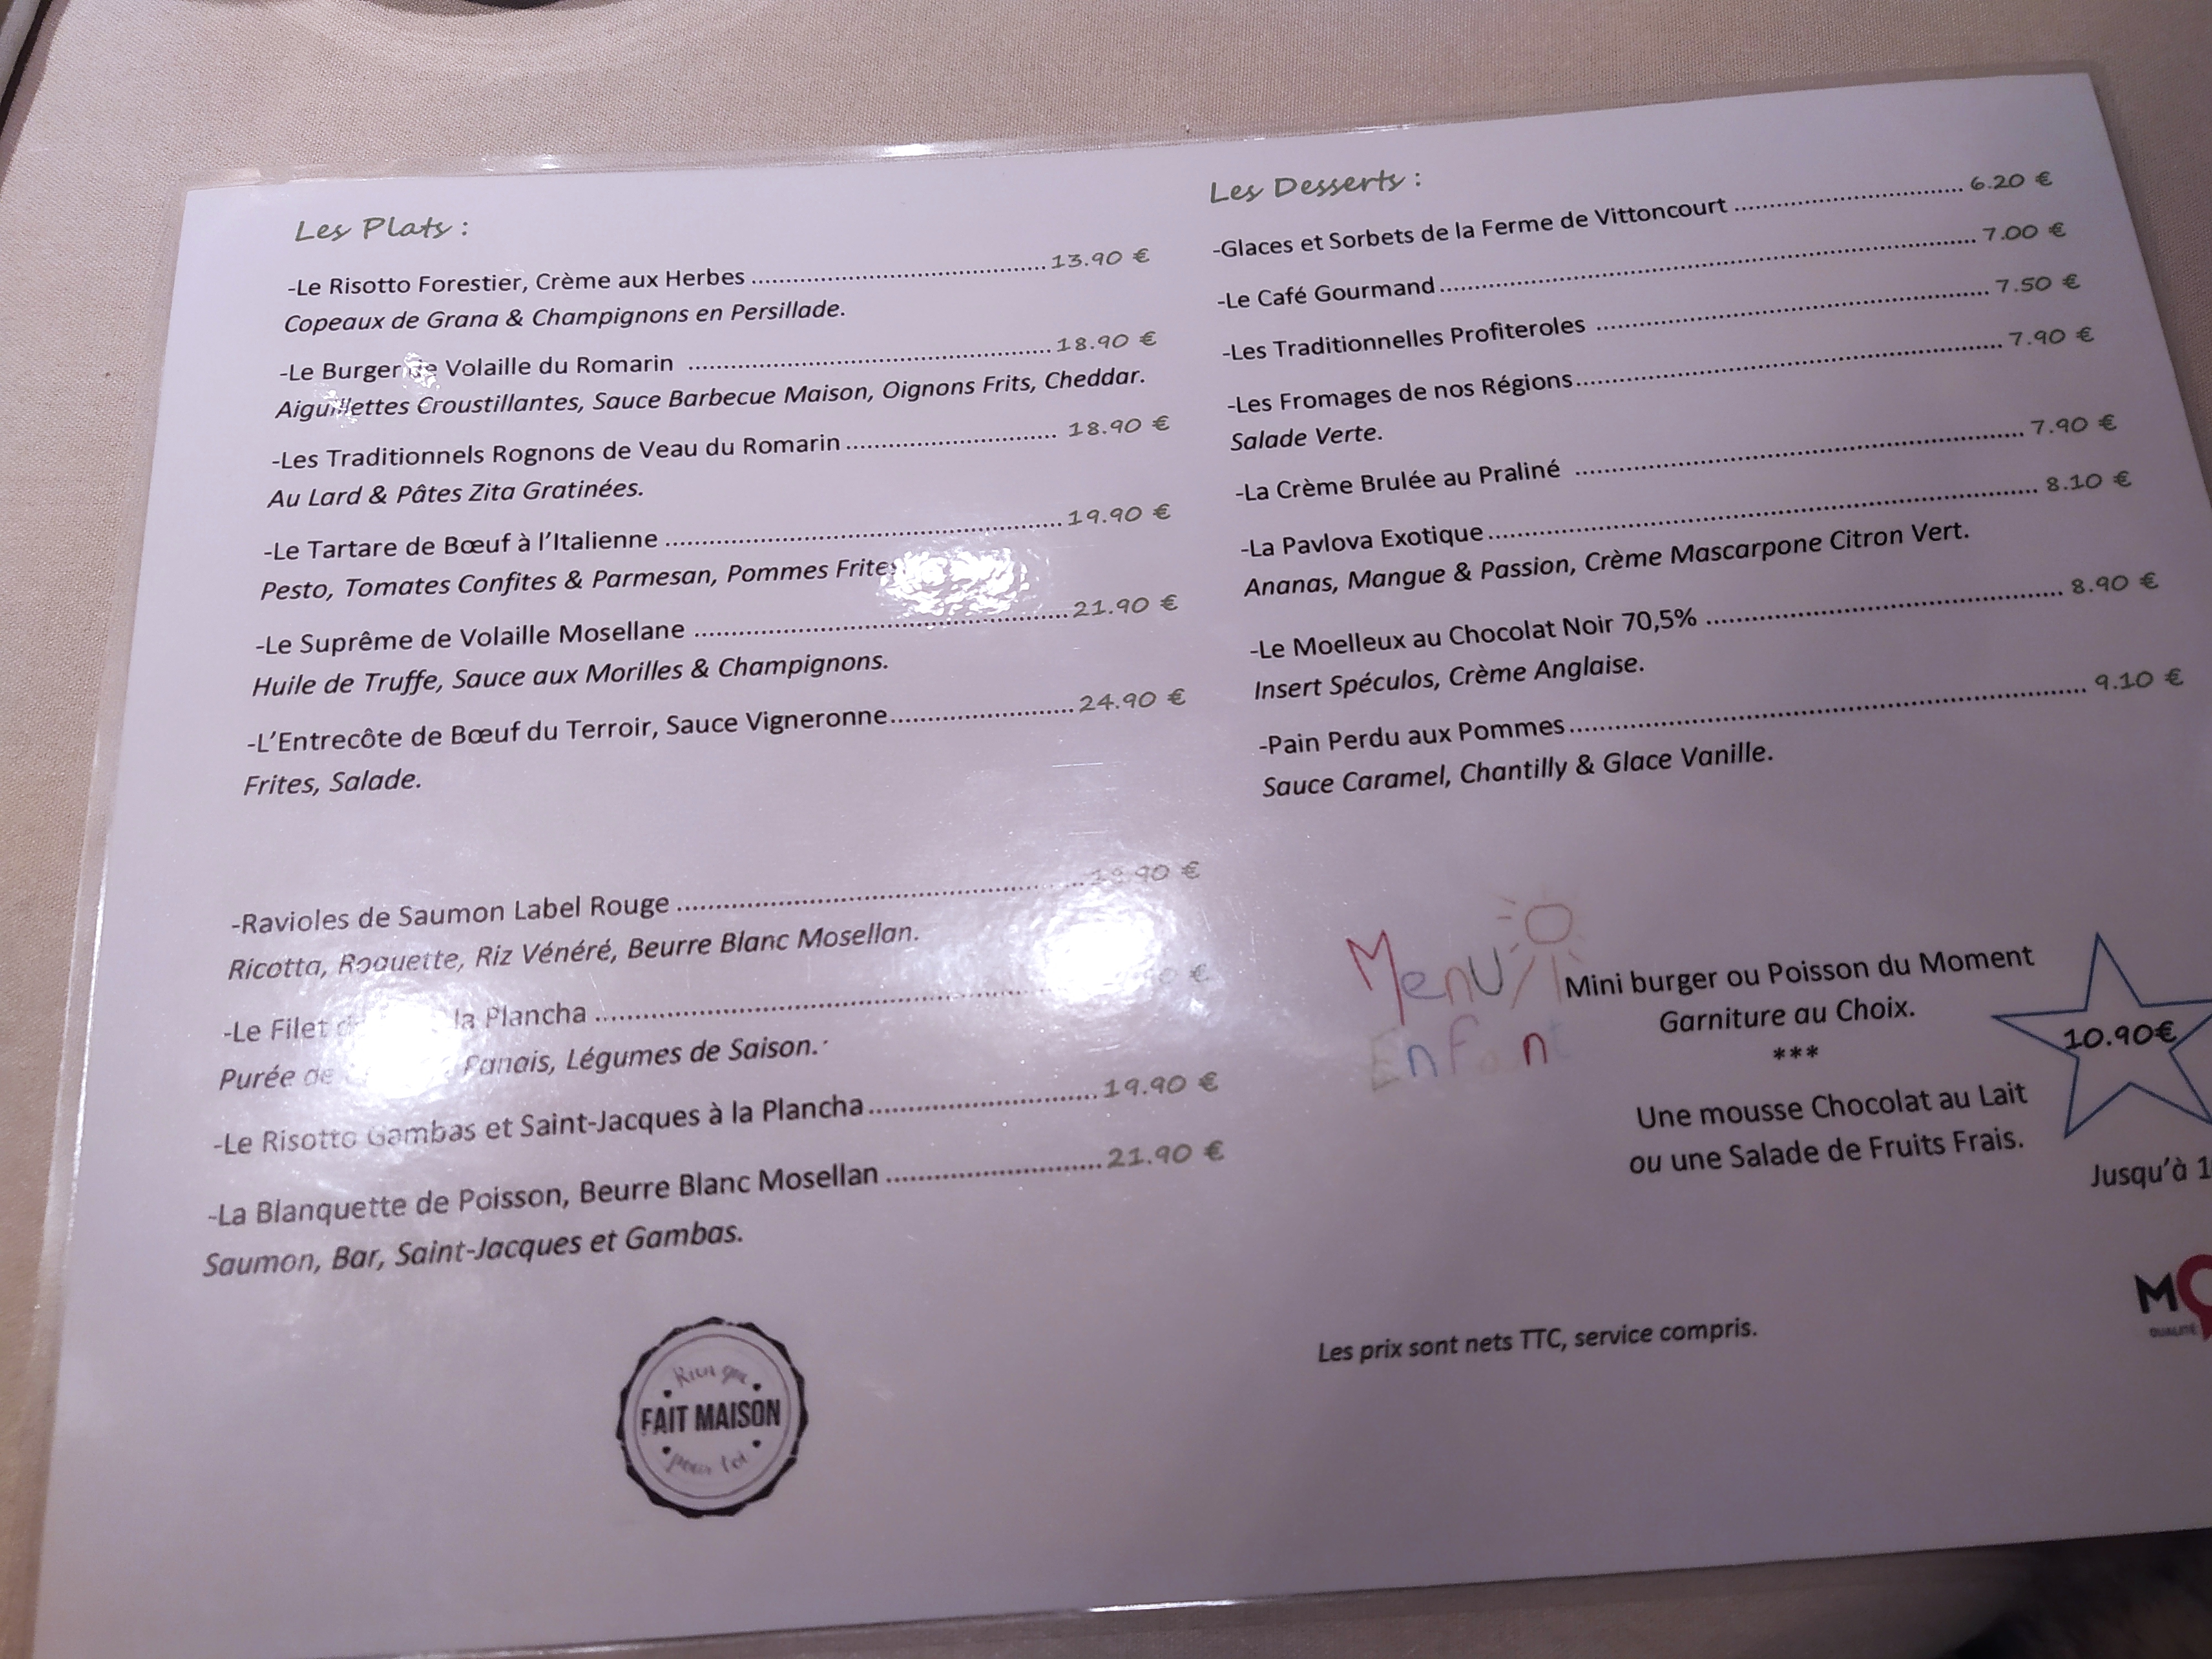 Les Plats :
-Le Risotto Forestier, Crème aux Herbes ........ 13.90 €
Copeaux de Grana & Champignons en Persillade.
-Le Burger de Volaille du Romarin ........ 18.90 €
Aiguillettes Croustillantes, Sauce Barbecue Maison, Oignons Frits, Cheddar.
-Les Traditionnels Rognons de Veau du Romarin ........ 18.90 €
Au Lard & Pâtes Zita Gratinées.
-Le Tartare de Bœuf à l'Italienne ........ 19.90 €
Pesto, Tomates Confites & Parmesan, Pommes Frites
-Le Suprême de Volaille Mosellane ........ 21.90 €
Huile de Truffe, Sauce aux Morilles & Champignons.
-L'Entrecôte de Bœuf du Terroir, Sauce Vigneronne ........ 24.90 €
Frites, Salade.
-Ravioles de Saumon Label Rouge ........ €
Ricotta, Roquette, Riz Vénéré, Beurre Blanc Mosellan.
-Le Filet la Plancha ........ €
Purée de Panais, Légumes de Saison.
-Le Risotto Gambas et Saint-Jacques à la Plancha ........ 19.90 €
-La Blanquette de Poisson, Beurre Blanc Mosellan ........ 21.90 €
Saumon, Bar, Saint-Jacques et Gambas.
Rien que
FAIT MAISON
pour toi
Les Desserts :
-Glaces et Sorbets de la Ferme de Vittoncourt ........ 6.20 €
-Le Café Gourmand ........ 7.00 €
-Les Traditionnelles Profiteroles ........ 7.50 €
-Les Fromages de nos Régions ........ 7.90 €
Salade Verte.
-La Crème Brulée au Praliné ........ 7.90 €
-La Pavlova Exotique ........ 8.10 €
Ananas, Mangue & Passion, Crème Mascarpone Citron Vert.
-Le Moelleux au Chocolat Noir 70,5% ........ 8.90 €
Insert Spéculos, Crème Anglaise.
-Pain Perdu aux Pommes ........ 9.10 €
Sauce Caramel, Chantilly & Glace Vanille.
Menu
Enfant
Mini burger ou Poisson du Moment
Garniture au Choix.
***
Une mousse Chocolat au Lait
ou une Salade de Fruits Frais.
10.90€
Jusqu'à
Les prix sont nets TTC, service compris.
QUALITÉ